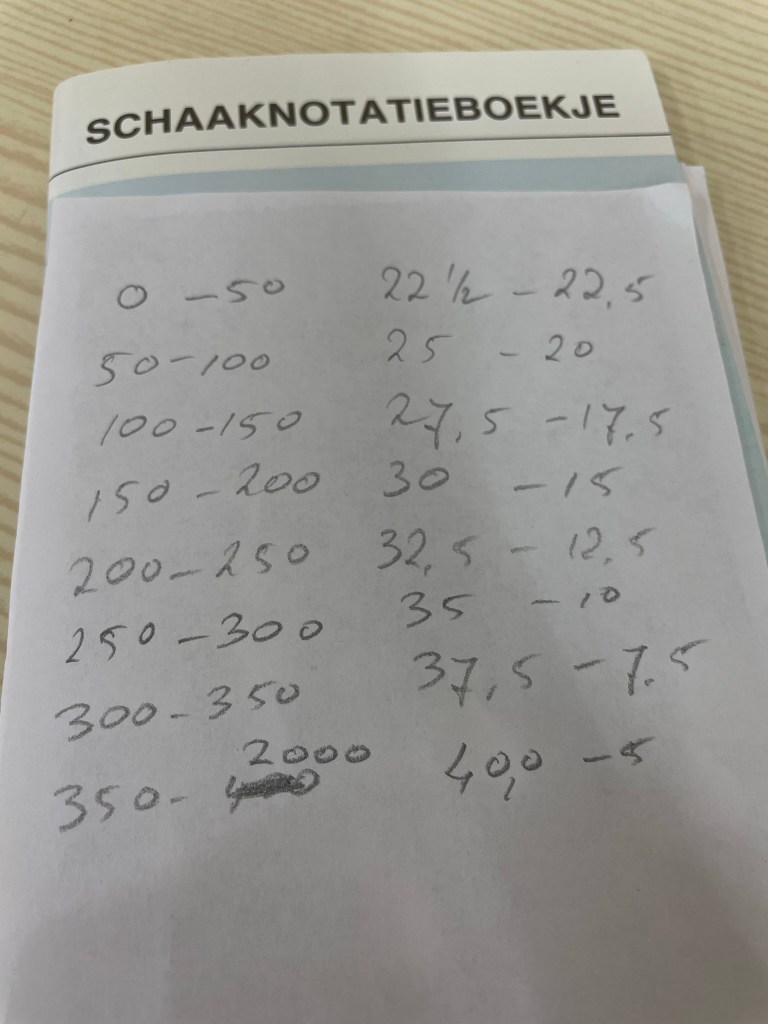 SCHAAKNOTATIEBOEKJE
0 - 50 22 1/2 - 22,5
50 - 100 25 - 20
100 - 150 27,5 - 17,5
150 - 200 30 - 15
200 - 250 32,5 - 12,5
250 - 300 35 - 10
300 - 350 37,5 - 7.5
350 - 2000 40,0 - 5